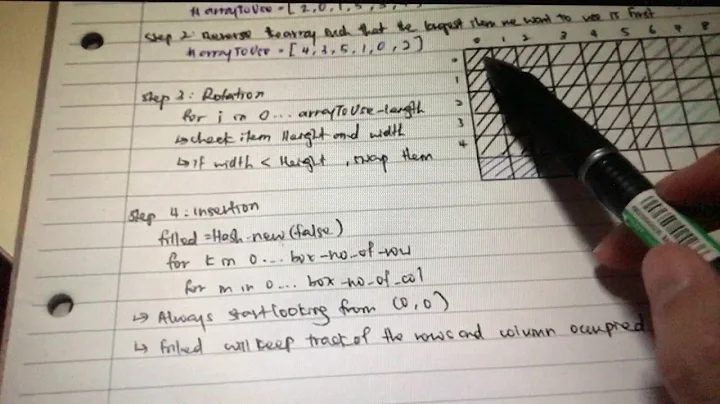 # arrayToUse = [ 2, 0, 1, 5, 3,
Step 2: Reverse the array such that the largest item we want to use is first
# arrayToUse = [ 4, 3, 5, 1, 0, 2 ]
0 1 2 3 4 5 6 7 8
0
1
2
3
4
Step 3: Rotation
for i in 0... arrayToUse-length
↳ check item Height and width
↳ if width < Height , swap them
Step 4: insertion
filled = Hash-new (false)
for k in 0... box-no-of-row
for m in 0... box-no-of-col
↳ Always start looking from (0,0)
↳ filled will keep track of the rows and column occupied